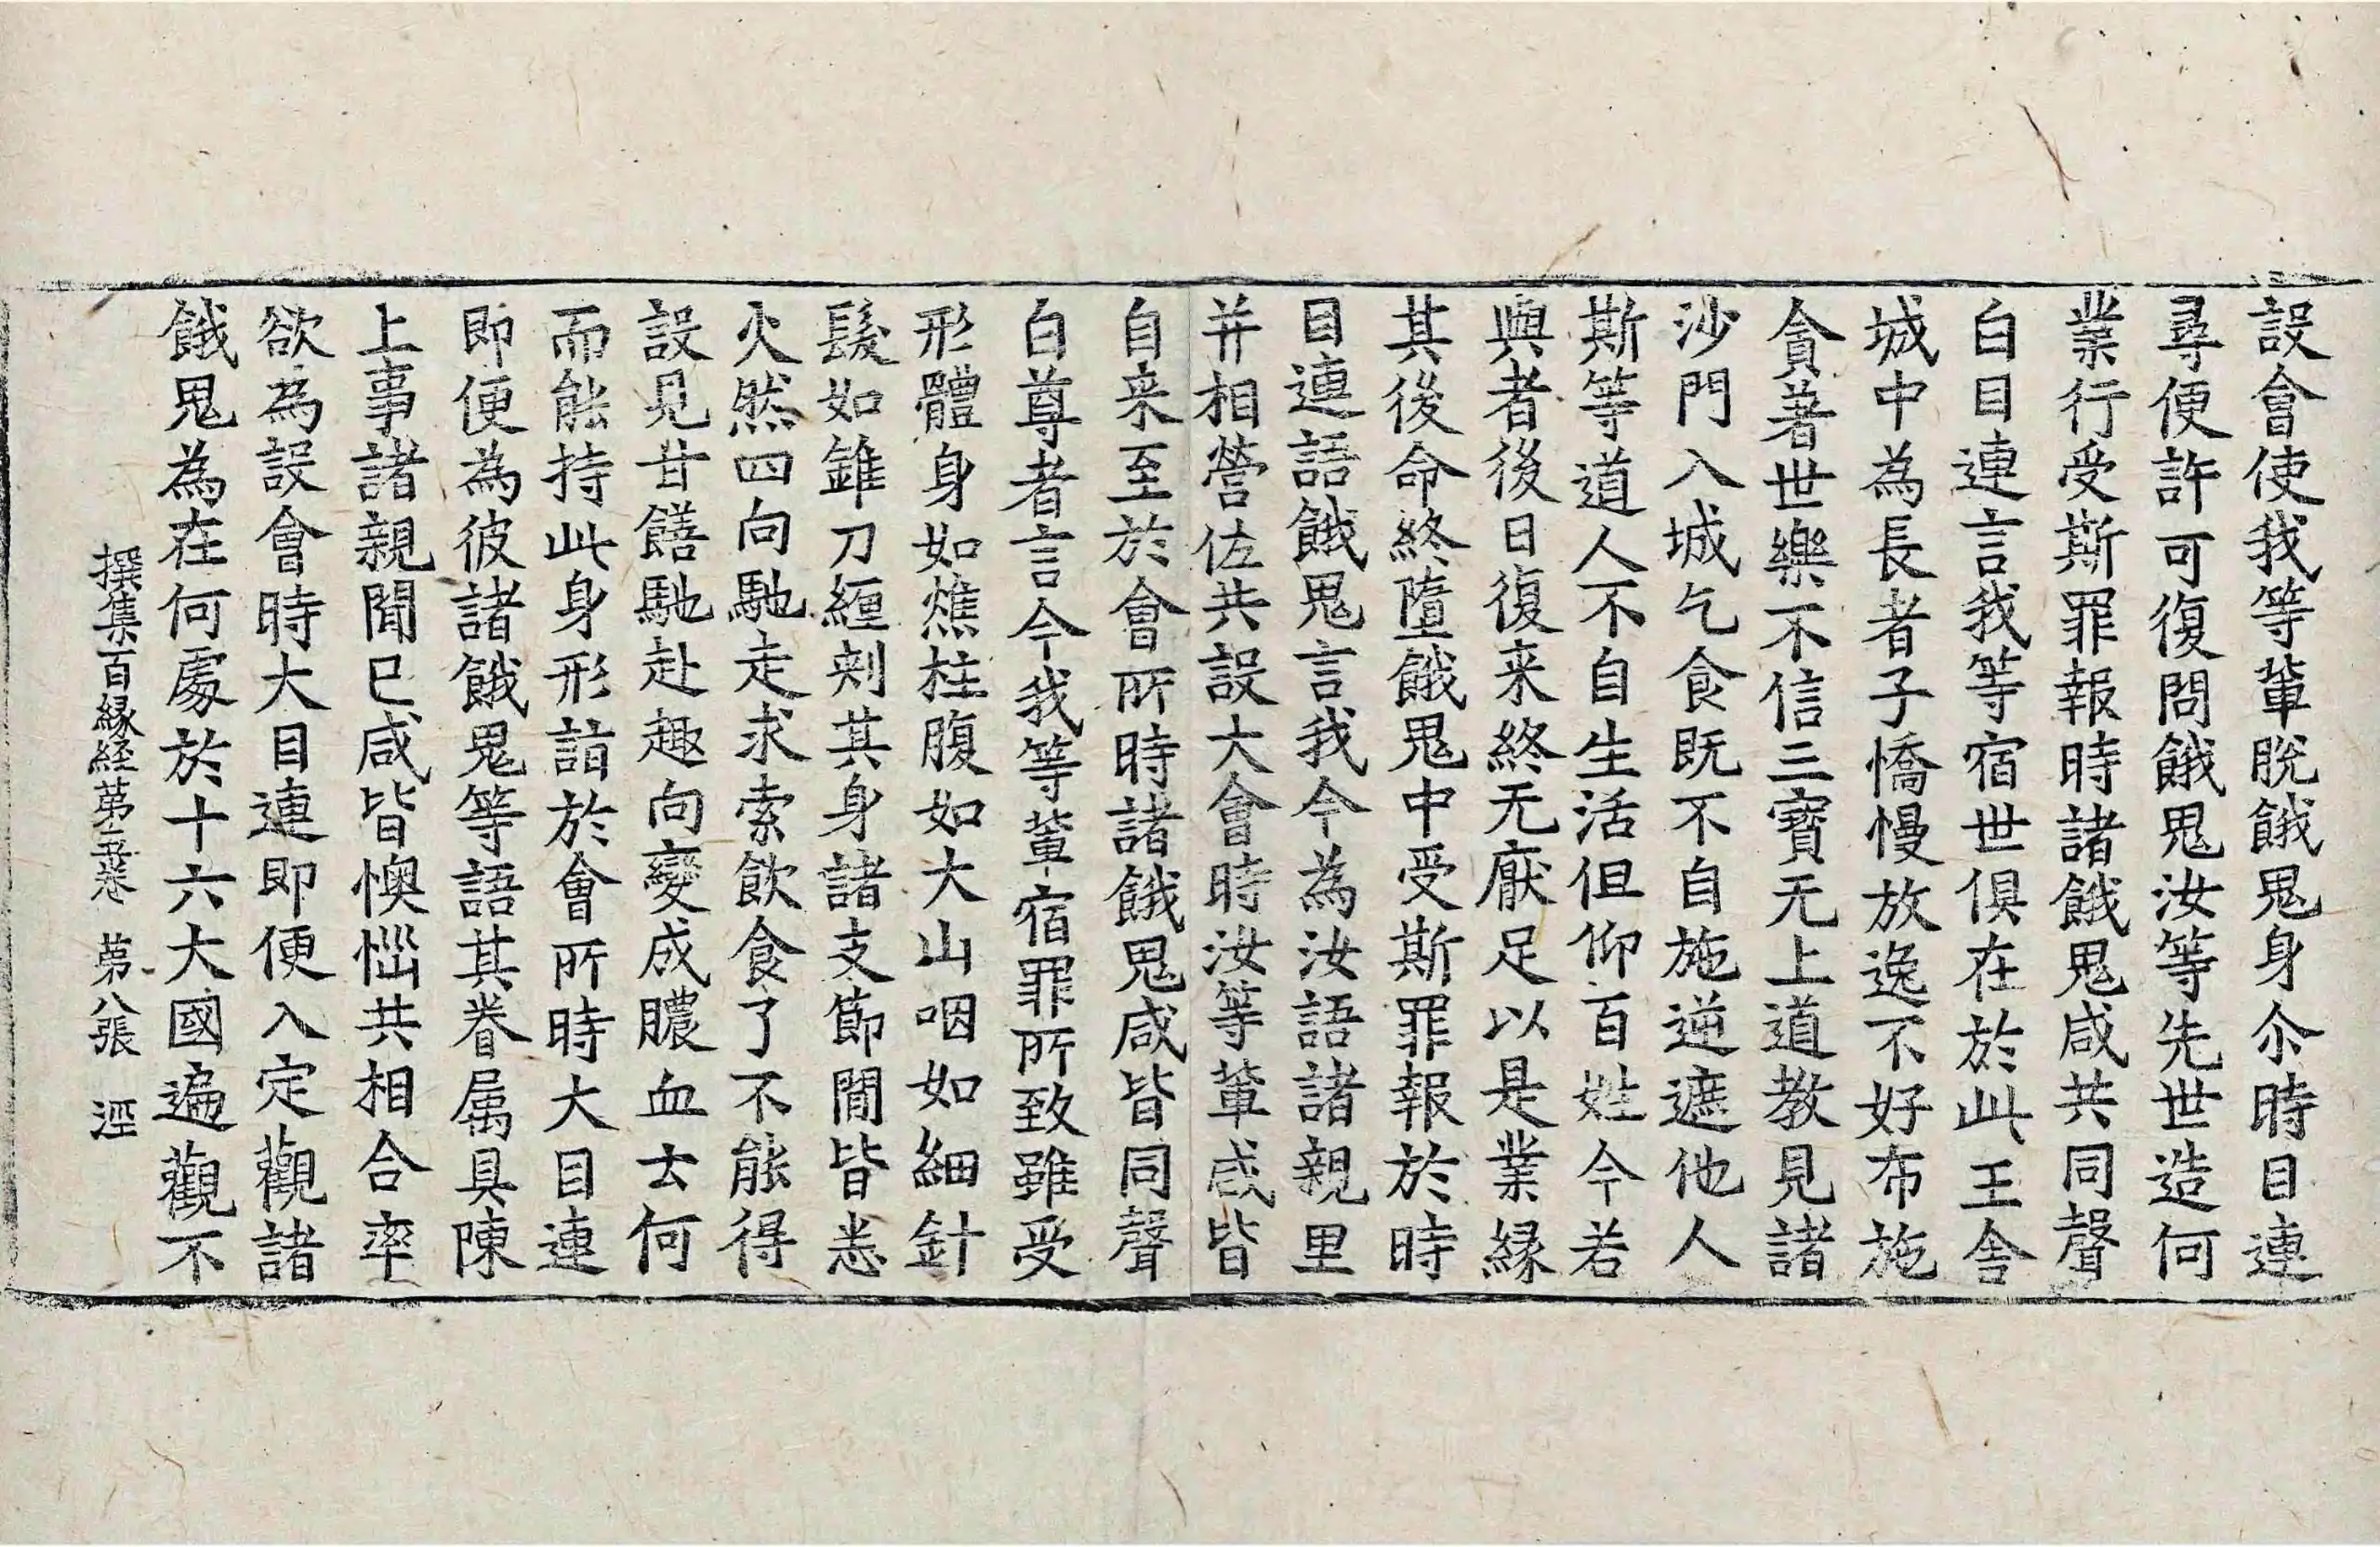 設會使我等輩脫餓鬼身尒時目連
尋便許可復問餓鬼汝等先世造何
業行受斯罪報時諸餓鬼咸共同聲
白目連言我等宿世俱在於此王舍
城中為長者子憍慢放逸不好布施
貪著世樂不信三寶无上道教見諸
沙門入城乞食既不自施逆遮他人
斯等道人不自生活但仰百姓今若
與者後日復来終无厭足以是業縁
其後命終墮餓鬼中受斯罪報於時
目連語餓鬼言我今為汝語諸親里
并相營佐共設大會時汝等輩咸皆
自来至於會所時諸餓鬼咸皆同聲
白尊者言今我等輩宿罪所致雖受
形體身如燋柱腹如大山咽如細針
髮如錐刀纏刾其身諸支節間皆悉
火然四向馳走求索飲食了不能得
設見甘饍馳赴趣向變成膿血云何
而能持此身形詣於會所時大目連
即便為彼諸餓鬼等語其眷属具陳
上事諸親聞已咸皆懊惱共相合率
欲為設會時大目連即便入定觀諸
餓鬼為在何處於十六大國遍觀不
撰集百縁経苐五卷 苐八張 涇